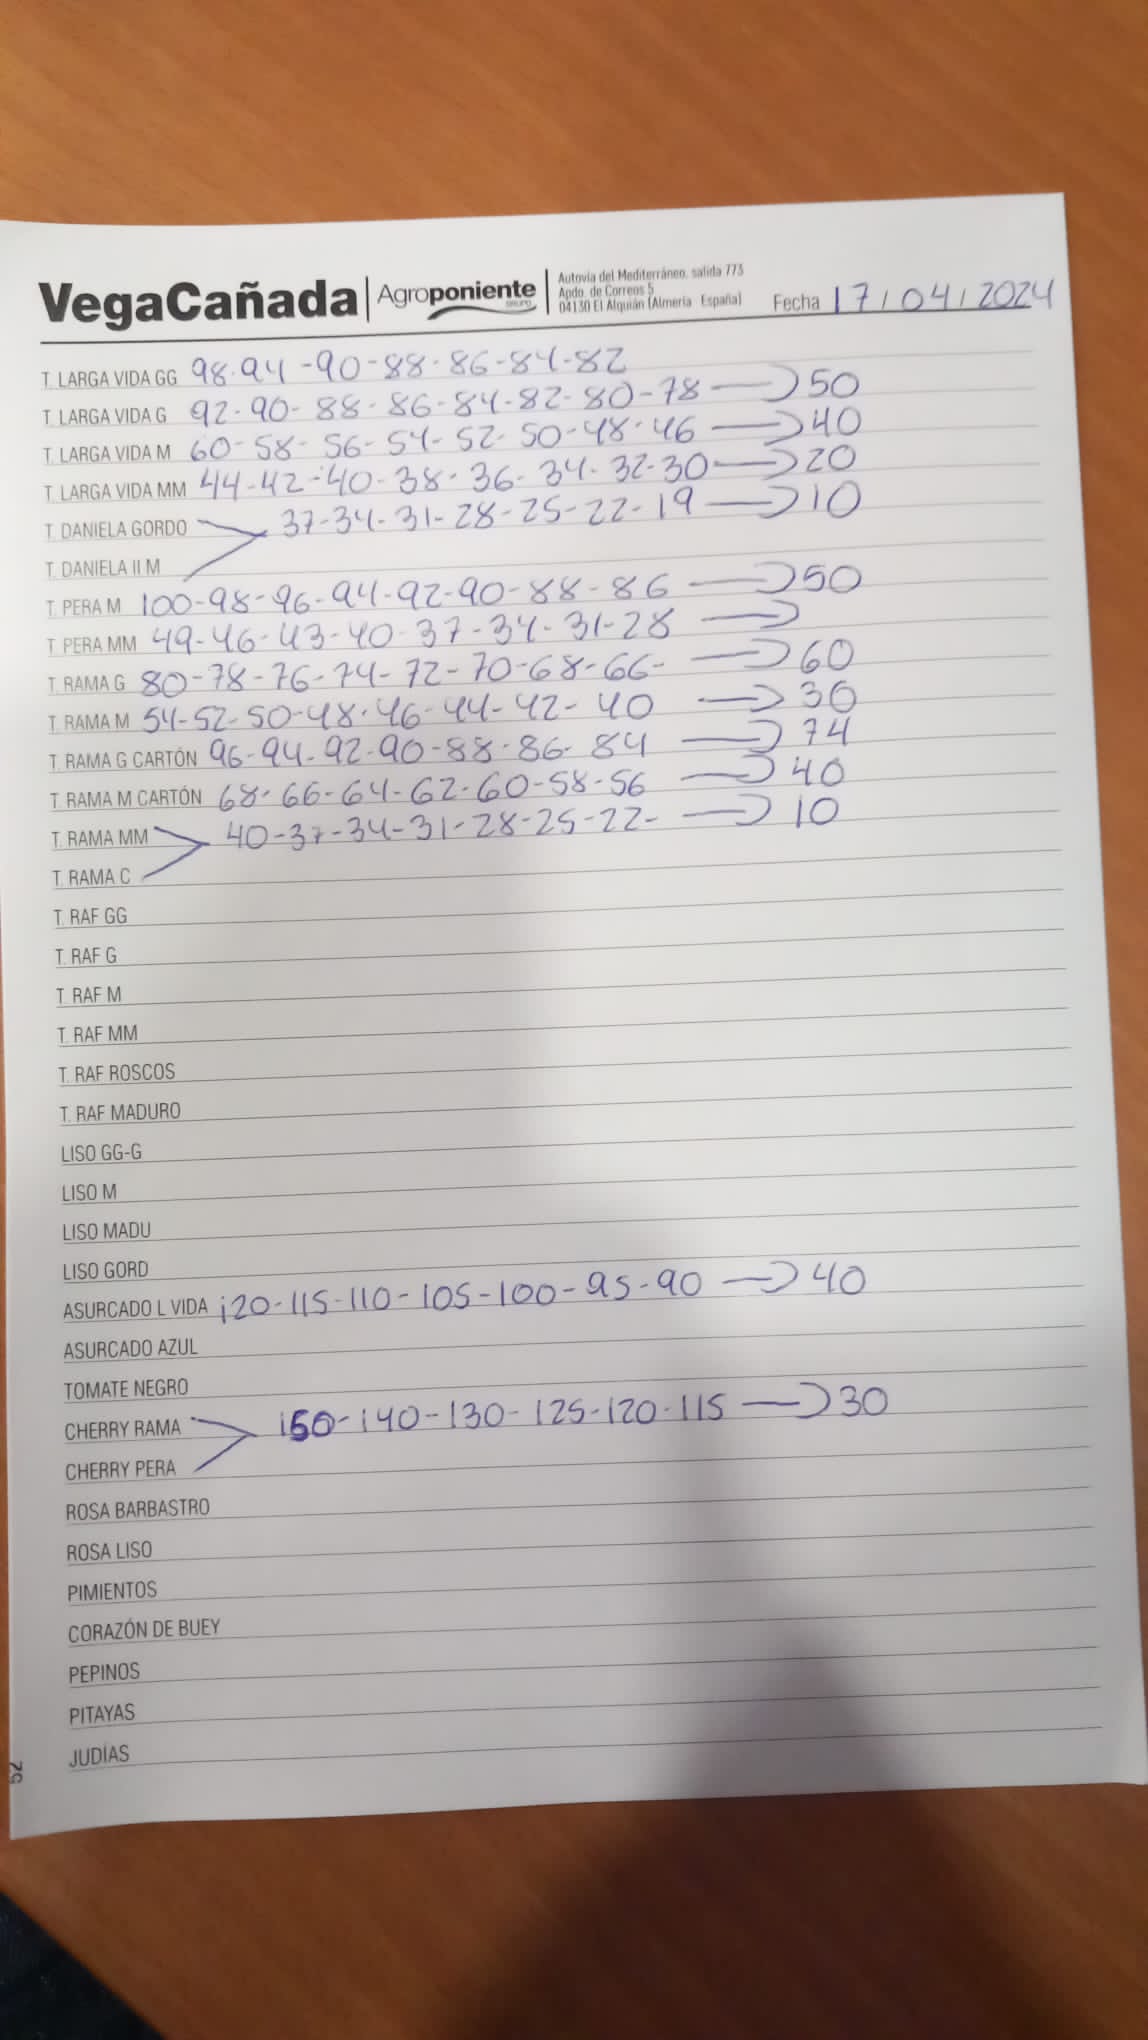 VegaCañada | Agroponiente GRUPO
Autovía del Mediterráneo, salida 773
Apdo. de Correos 5
04130 El Alquián (Almería España)
Fecha 17/04/2024
T. LARGA VIDA GG 98-94-90-88-86-84-82
T. LARGA VIDA G 92-90-88-86-84-82-80-78 → 50
T. LARGA VIDA M 60-58-56-54-52-50-48-46 → 40
T. LARGA VIDA MM 44-42-40-38-36-34-32-30 → 20
T. DANIELA GORDO 37-34-31-28-25-22-19 → 10
T. DANIELA II M
T. PERA M 100-98-96-94-92-90-88-86 → 50
T. PERA MM 49-46-43-40-37-34-31-28 →
T. RAMA G 80-78-76-74-72-70-68-66- → 60
T. RAMA M 54-52-50-48-46-44-42-40 → 30
T. RAMA G CARTÓN 96-94-92-90-88-86-84 → 74
T. RAMA M CARTÓN 68-66-64-62-60-58-56 → 40
T. RAMA MM 40-37-34-31-28-25-22- → 10
T. RAMA C
T. RAF GG
T. RAF G
T. RAF M
T. RAF MM
T. RAF ROSCOS
T. RAF MADURO
LISO GG-G
LISO M
LISO MADU
LISO GORD
ASURCADO L VIDA 120-115-110-105-100-95-90 → 40
ASURCADO AZUL
TOMATE NEGRO
CHERRY RAMA 150-140-130-125-120-115 → 30
CHERRY PERA
ROSA BARBASTRO
ROSA LISO
PIMIENTOS
CORAZÓN DE BUEY
PEPINOS
PITAYAS
JUDÍAS
52